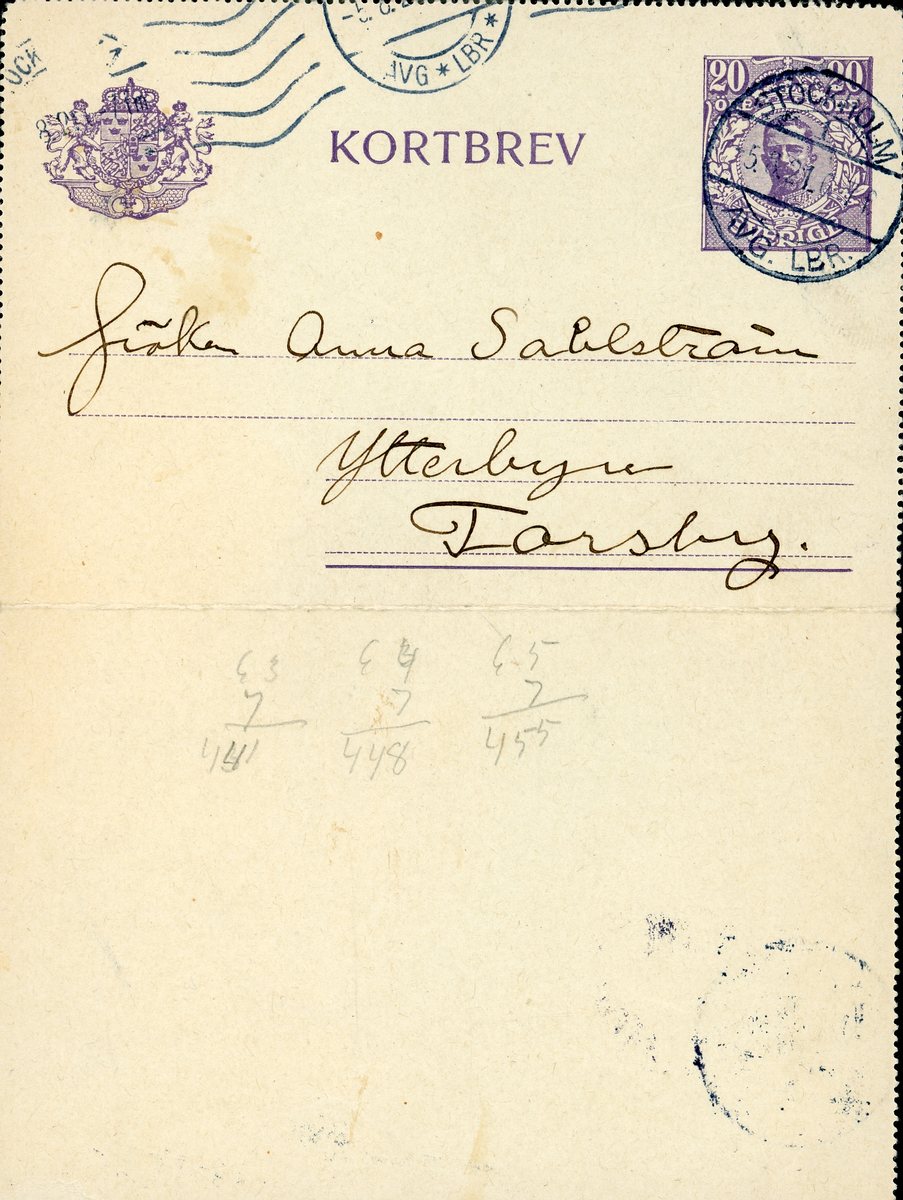 AVG * LBR *
KORTBREV
20 20
ÖRE
STOCKHOLM
1
AVG. LBR.
SVERIGE
Fröken Anna Sahlström
Ytterbyn
Torsby.
63 64 65
7 7 7
441 448 455